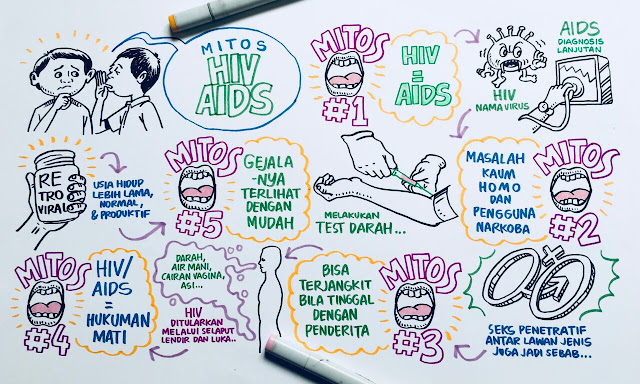 MITOS
HIV
AIDS
MITOS
#1
HIV
=
AIDS
HIV
NAMA VIRUS
AIDS
DIAGNOSIS
LANJUTAN
MASALAH
KAUM
HOMO
DAN
PENGGUNA
NARKOBA
MITOS
#2
SEKS PENETRATIF
ANTAR LAWAN JENIS
JUGA JADI SEBAB...
MITOS
#3
BISA
TERJANGKIT
BILA TINGGAL
DENGAN
PENDERITA
DARAH,
AIR MANI,
CAIRAN VAGINA,
ASI...
HIV
DITULARKAN
MELALUI SELAPUT
LENDIR DAN LUKA..
MITOS
#4
HIV/
AIDS
=
HUKUMAN
MATI
RE
TRO
VIRAL
USIA HIDUP
LEBIH LAMA,
NORMAL,
& PRODUKTIF
MITOS
#5
GEJALA
-NYA
TERLIHAT
DENGAN
MUDAH
MELAKUKAN
TEST DARAH...